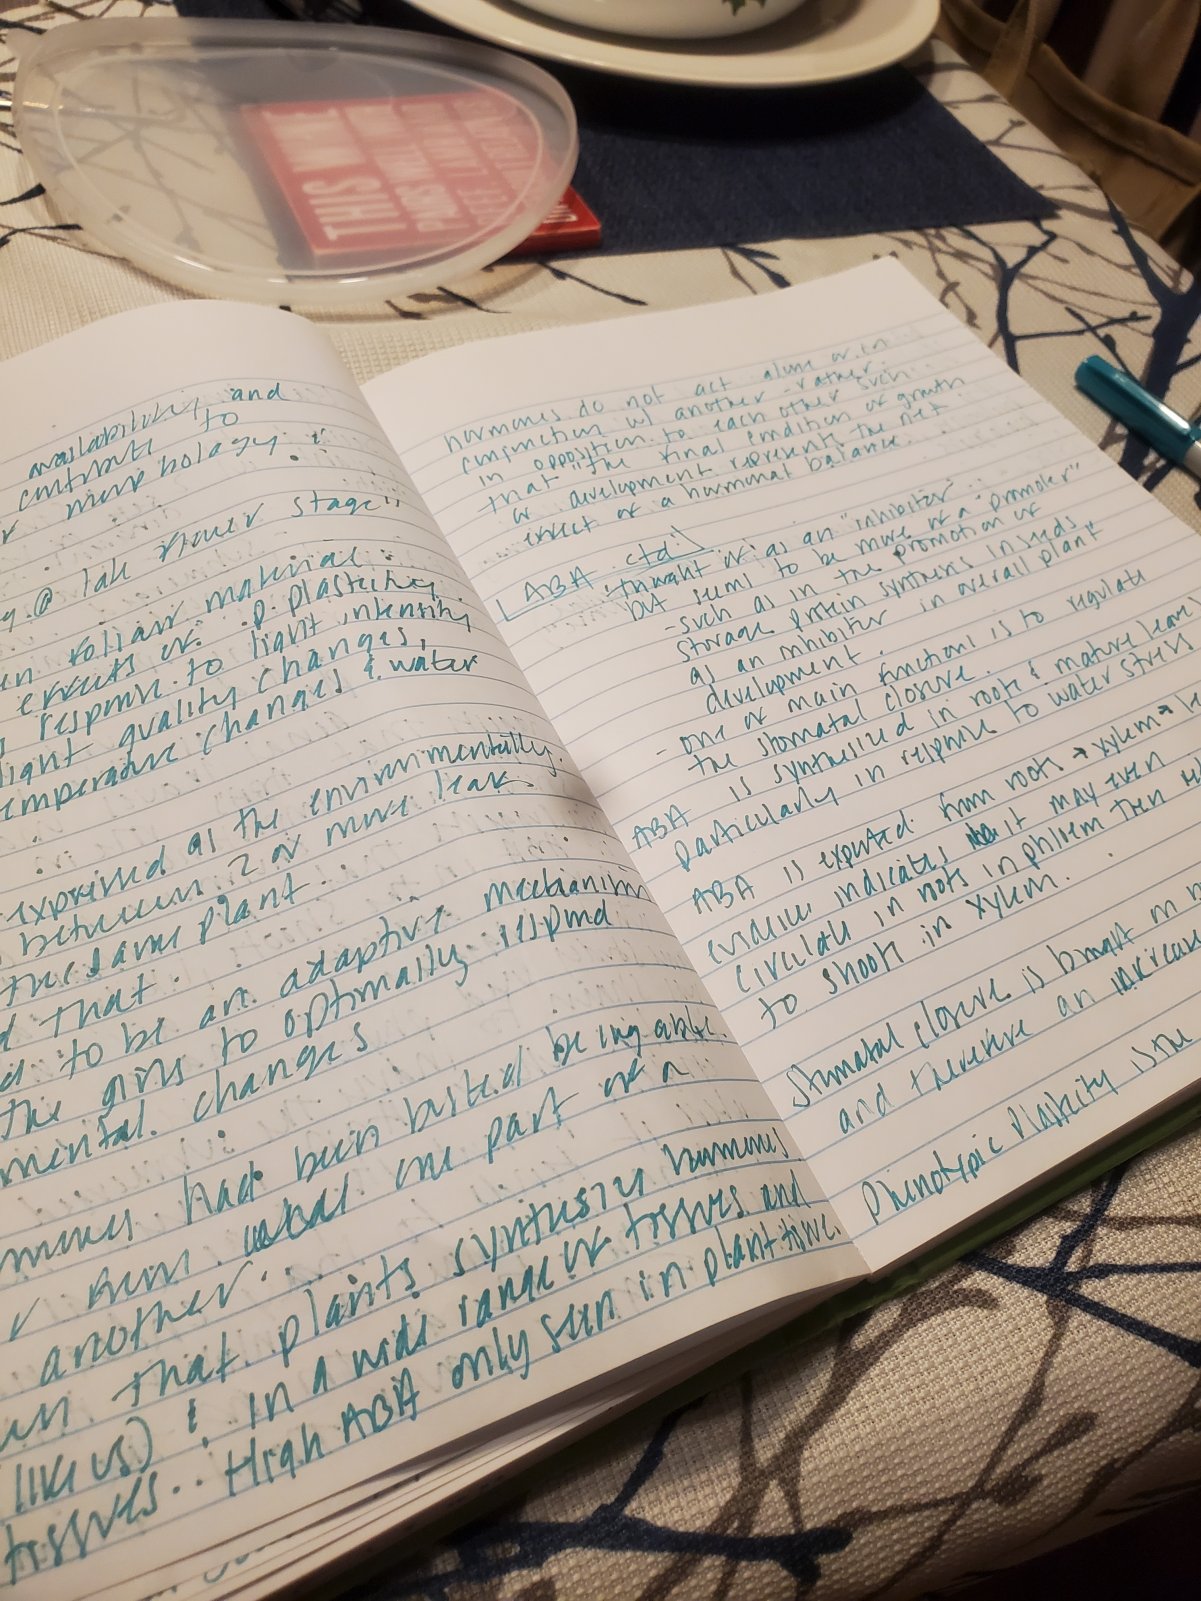 THIS IS NOT
availability and
contribute to
morphology.
stage"
foliar material:
effects of p. plasticity
response to light intensity
light quality changes,
temperature changes & water
expressed as the environmentally
between 2 or more leaf
the same plant
that
to be an adaptive mechanism
the gins to optimally respond
mental changes
had been busted being able
from what one part of a
another..
that plants synthesize hormones
(like us) & in a wide range of tissues and
tissues.. High ABA only seen in plant tissue.
hormones do not act alone or in
conjunction w/ another - rather
in opposition to each other such
that "the final condition of growth
or development represents the net
effect of a hormonal balance.
ABA ctd
- thought of as an "inhibitor"
but seems to be more of a "promoter"
- such as in the promotion of
storage protein synthesis in seeds
as an inhibitor in overall plant"
development.
- one of main functions is to regulate
the stomatal closure.
ABA is synthesized in roots & mature leaves
particularly in response to water stress
ABA is exported from roots → xylem →
evidence indicates it may even
circulate in roots in phloem then
to shoots in xylem.
Stomatal closure is brought
and therefore an increase
Phenotypic Plasticity is the